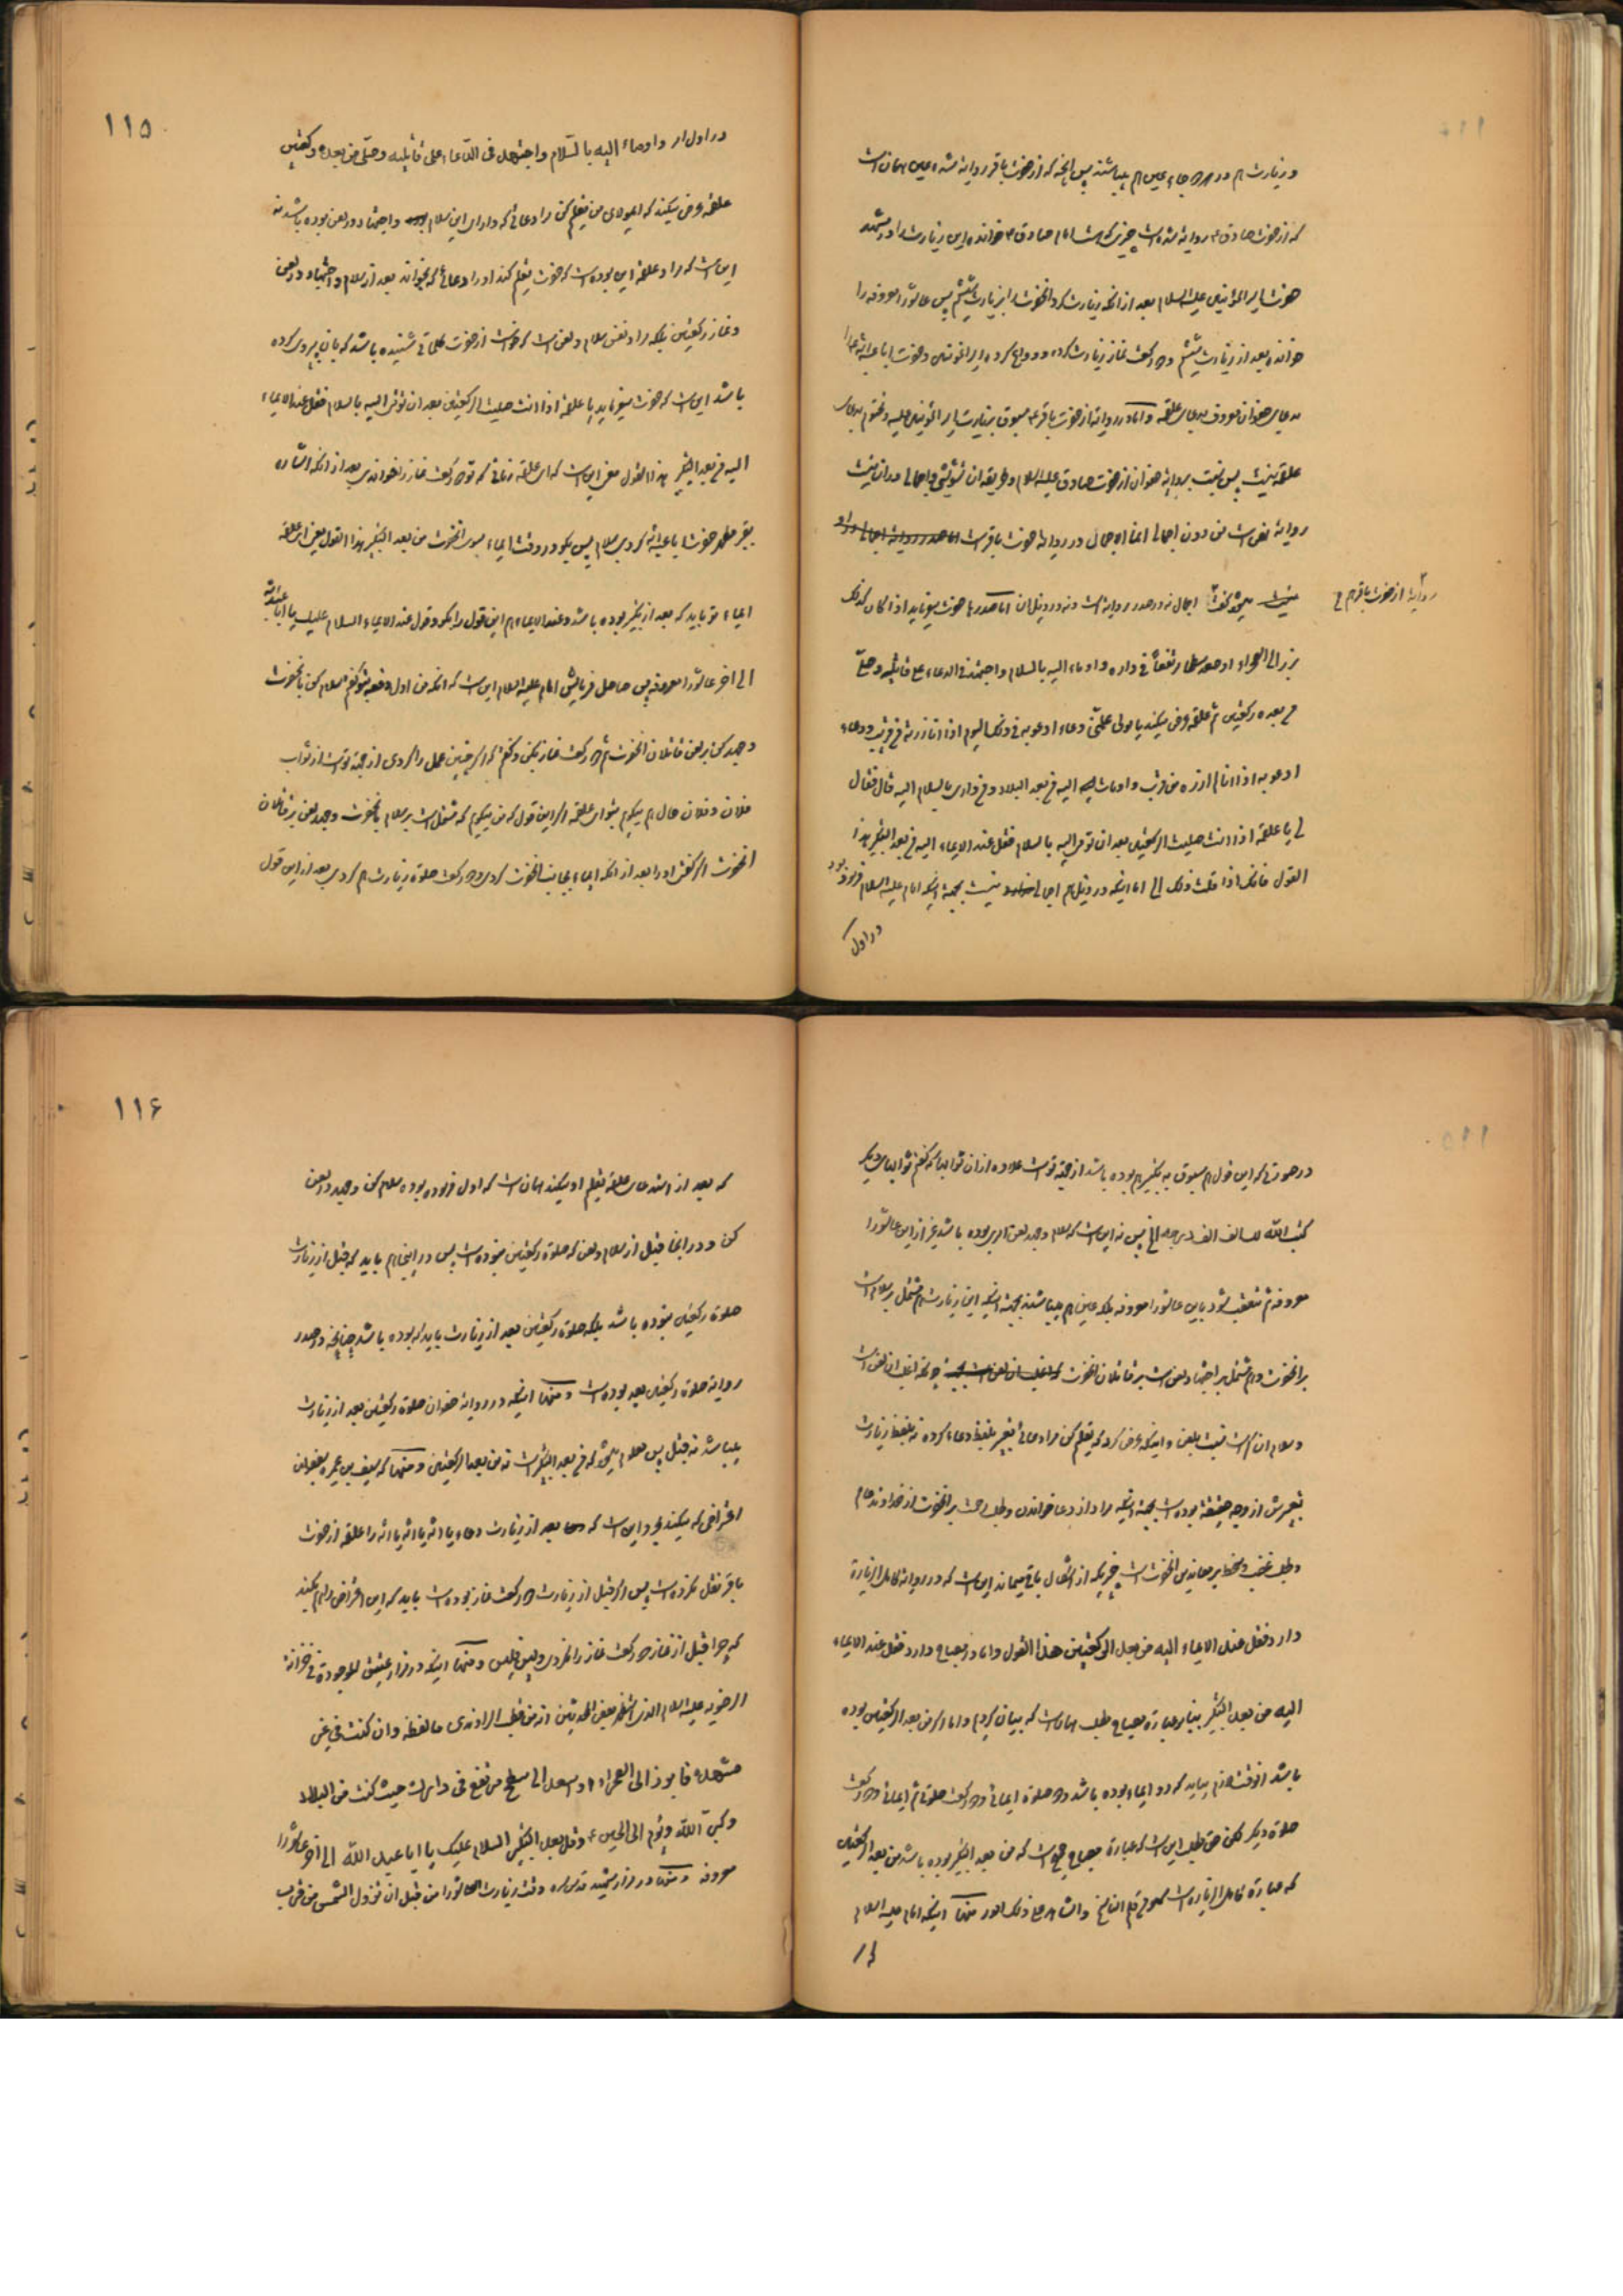 و زیارت هم در هر دو جاء عین هم میباشند پس انچه که از حضرت باقر روایه شده عین همان است
که از حضرت صادق ع روایه شده است چیزی که هست امام صادق ع خوانده این زیارت را در مشهد
حضرت امیر المؤمنین علیه السلام بعد از انکه زیارت کرد انحضرت را بزیارت ششم پس عاشورا معروفه را
خوانده بعد از زیارت ششم دو رکعت نماز زیارت کرده و وداع کرده امیر المؤمنین و حضرت ابا عبد الله را
بدعای صفوان معروف بدعای علقمه و اما در روایه از حضرت باقر ع مسبوق بزیارت امیر المؤمنین علیه و مختوم بدعای
علقمه نیست پس نسبت بروایه صفوان از حضرت صادق علیه السلام و طریقه ان تشویشی و اجمالی در ان نیست
روایه نص است من دون اجمال انما الاجمال در روایه حضرت باقر است اما صدر روایه اجمالی در او
روایه از حضرت باقر هم
نیست اجمال نه در صدر روایه است و نه در ذیل ان اما صدرها حضرت میفرماید اذا کان کذلک
برز الی الصحراء او صعد سطحا مرتفعا فی داره و اومأ الیه بالسلام و اجتهد فی الدعاء علی قاتلیه و صلّی
من بعده رکعتین ثم علقمه عرض میکند یا مولی علّمنی دعاء ادعو به فی ذلک الیوم اذا انا زرته من قریب و دعاء
ادعو به اذا انا لم ازره من قرب و اومات الیه من بعد البلاد و من داری بالسلام الیه قال فقال
لی یا علقمه اذا انت صلیت الرکعتین بعد ان تومی الیه بالسلام فقل عند الایماء الیه من بعد التکبیر هذا
القول فانک اذا قلت ذلک الی اما اینکه در ذیل هم اجمالی نیست بجهة اینکه امام علیه السلام فرمود بود
در اول
۱۱۵
در اول امر و اومأ الیه بالسّلام و اجتهد فی الدّعاء علی قاتلیه و صلّی من بعده رکعتین
علقمه عرض میکند که ایمولای من تعلیم کن مرا دعائی که دارای این سلام و اجتهاد در لعن بوده باشد نه
این است که مراد علقمه این بوده است که حضرت تعلیم کند او را دعائی که بخواند بعد از سلام و اجتهاد در لعن
و نماز رکعتین بلکه مراد نفس سلام و لعن است که خواست از حضرت کلماتی شنیده باشد که بان پیروی کرده
باشد این است که حضرت میفرماید یا علقمه اذا انت صلیت الرکعتین بعد ان تؤمی الیه بالسلام فقل عند الایماء
الیه من بعد التکبیر هذا القول معنی این است که ای علقمه زمانی که تو دو رکعت نماز را خواندی بعد از انکه اشاره
بقبر مطهر حضرت ابا عبد الله کردی بسلام پس بگو در وقت ایماء بسوی انحضرت من بعد التکبیر هذا القول یعنی ای علقمه
ایماء تو باید که بعد از تکبیر بوده باشد و عند الایماء هم این قول را بگو و قول عند الایماء السلام علیک یا ابا عبد الله
الی اخر عاشورا معروفه پس حاصل فرمایش امام علیه السلام این است که انکه من اول دفعه بتو گفتم سلام کن بانحضرت
و جهد کن بر لعن قاتلان انحضرت ثم دو رکعت نماز بکن و گفتم که اگر چنین عمل را کردی از جهة تو است از ثواب
فلان و فلان حال هم میگویم بتو ای علقمه اگر این قول که من میگویم که مشتمل است بر سلام بانحضرت و جهد لعن بر قاتلان
انحضرت اگر گفتی او را بعد از انکه ایماء بجانب انحضرت کردی و دو رکعت صلوة زیارت هم کردی بعد از این قول
در صورتی که این قول هم مسبوق به تکبیر هم بوده باشد از جهة تو است علاوه از ان ثوابها که گفتم ثوابهای دیگر
کتب الله لک الف الف درجه الخ پس نه این است که سلام و جهد لعن امری بوده باشد غیر از این عاشورا
معروفه ثم متعقب شود باین عاشورا معروفه بلکه عین هم میباشند بجهة اینکه این زیارت هم مشتمل بر سلام است
بر انحضرت و هم مشتمل بر اجتهاد لعن است بر قاتلان انحضرت چونکه اغلب ان لعن است
و سلام ان کم است نسبت بلعن و اینکه عرض کرد که تعلیم کن مرا دعائی تعبیر بلفظ دعاء کرده نه بلفظ زیارت
تعبیرش از وجه حقیقة بوده است بجهة اینکه مراد از دعا خواندن و طلب رحمت بر انحضرت از خداوند علام
و طلب غضب و سخط بر معاندین انحضرت است چیزیکه از اشکال باقیمانده این است که در روایه کامل الزیارة
دارد فقل عند الایماء الیه من بعد الرکعتین هذا القول و اما در مصباح دارد فقل عند الایماء
الیه من بعد التکبیر بنابر عبارة مصباح مطلب همان است که بیان کردیم و اما اگر من بعد الرکعتین بوده
باشد انوقت لازم میاید که دو ایماء بوده باشد و دو صلوة ایمائی و دو رکعت صلوتی ثم ایمائی و دو رکعت
صلوة دیگر لکن حق مطلب این است که عبارة مصباح صحیح است که من بعد التکبیر بوده باشد من بعد الرکعتین
که عبارة کامل الزیاره است سهو من قلم الناسخ و الشاهد علی ذلک امور منها اینکه امام علیه السلام
۱۱۶
که بعد از استدعای علقمه تعلیم او میکند همان است که اول فرموده بوده سلام کن و جهد در لعن
کن و در انجا قبل از سلام و لعن که صلوة رکعتین نبوده است پس در اینجا هم باید که قبل از زیارت
صلوة رکعتین نبوده باشد بلکه صلوة رکعتین بعد از زیارت باید که بوده باشد چنانچه در صدر
روایه صلوة رکعتین بعد بوده است و منها اینکه در روایه صفوان صلوة رکعتین بعد از زیارت
میباشد نه قبل پس معلوم میشود که من بعد التکبیر است نه من بعد الرکعتین و منها که سیف بن عمیره بصفوان
اعتراضی که میکند همین است که بعد از زیارت دعاء یا الله یا الله یا الله را علقمه از حضرت
باقر نقل نکرده است پس اگر قبل از زیارت دو رکعت نماز بوده است باید که این اعتراض را هم بکند
که چرا قبل از نماز دو رکعت نماز را نکردی و لیس فلیس و منها اینکه در مزار عتیق الموجودة فی خزانة
الرضویه علیه السلام الذی استظهر بعض المحدثین انه من قطب الراوندی ما لفظه وان کنت فی غیر
مشهده فابرز الی الصحراء او اصعد الی سطح مرتفع فی دارک حیث کنت من البلاد
و کبّر الله و توم الی الحسین ع و قل بعد التکبیر السلام علیک یا ابا عبد الله الی اخر عاشورا
معروفه و منها در مزار شهید قدس سره وقت زیارت العاشورا من قبل ان تزول الشمس من قرب